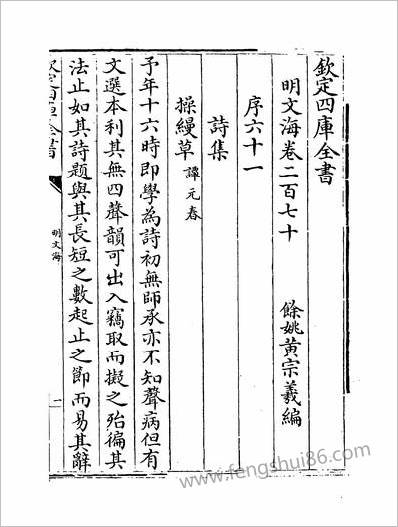 欽定四庫全書
明文海卷二百七十 餘姚黃宗羲編
序六十一
詩集
操縵草 譚元春
予年十六時即學為詩初無師承亦不知聲病但有
文選本利其無四聲韻可出入竊取而擬之殆徧其
法止如其詩題與其長短之數起止之節而易其辭
欽定四庫全書
明文海
一
www.fengshui86.com